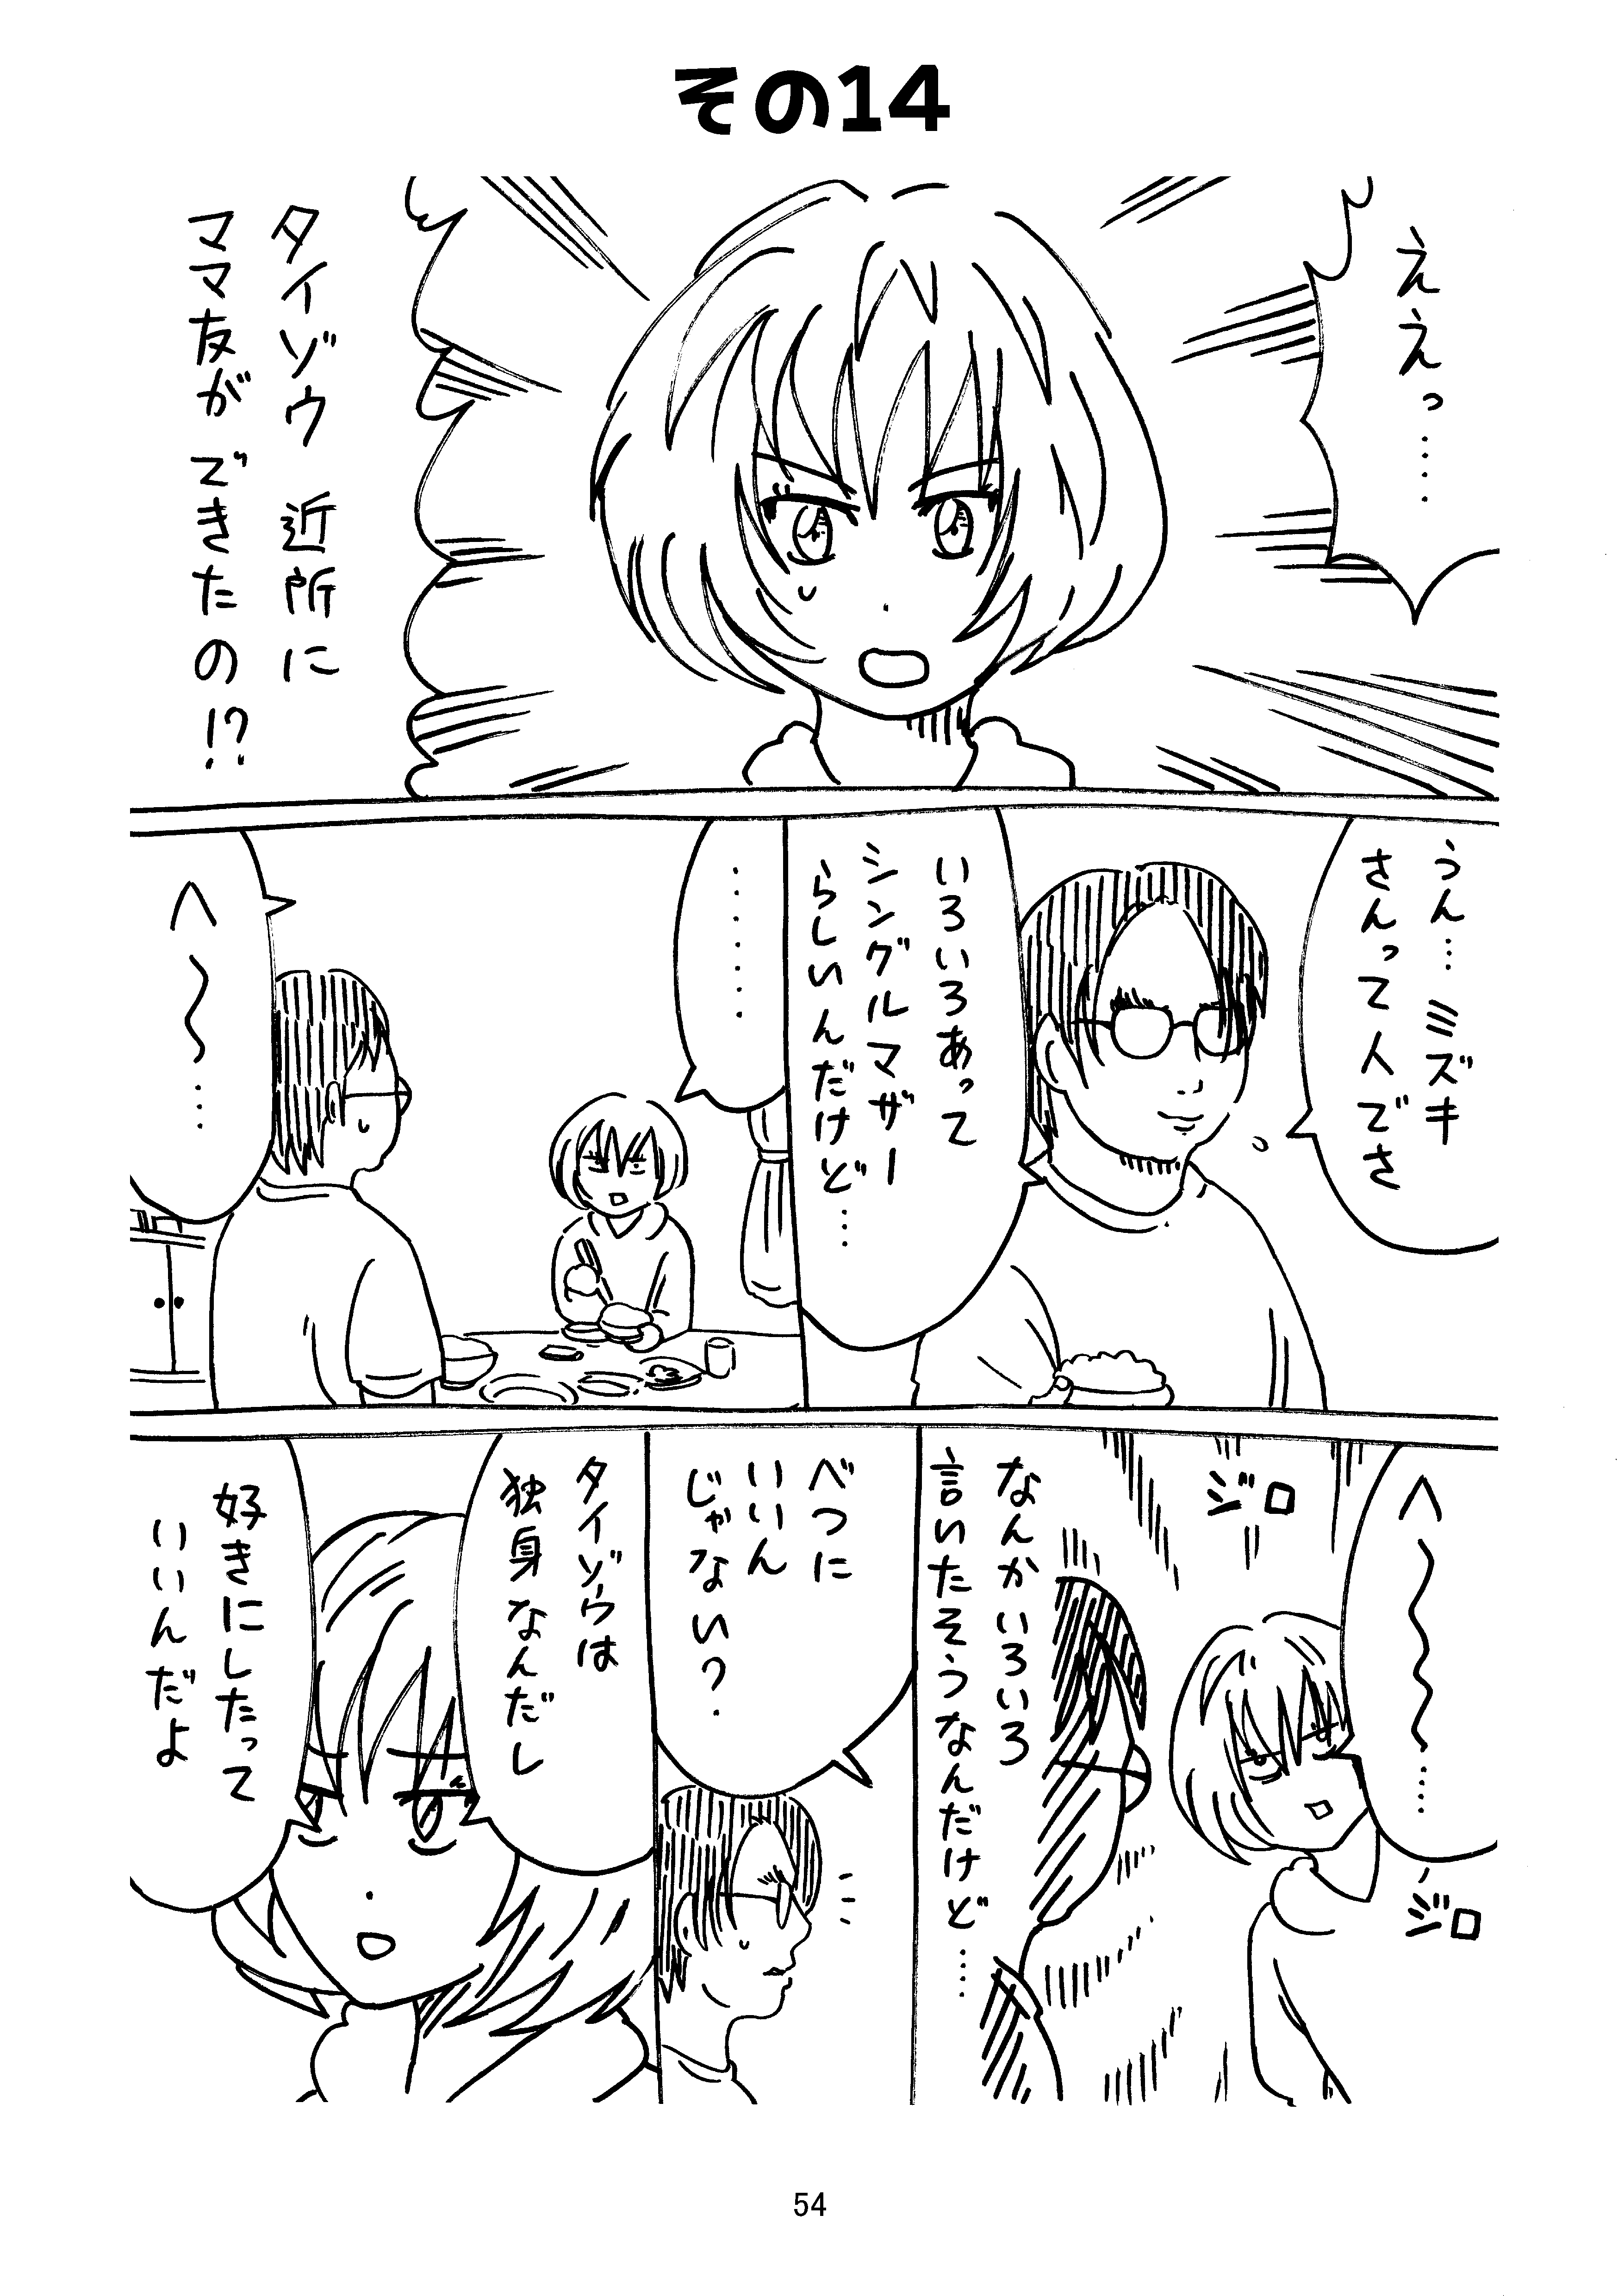 その14
ええっ……
タイゾウ 近所に
ママ友ができたの!?
うん…ミズキ
さんって人でさ
いろいろあって
シングルマザー
らしいんだけど…
……
へ〜…
へ〜〜…
ジロ
ジロ
なんかいろいろ
言いたそうなんだけど……
べつに
いいん
じゃない?
タイゾウは
独身なんだし
好きにしたって
いいんだよ
54